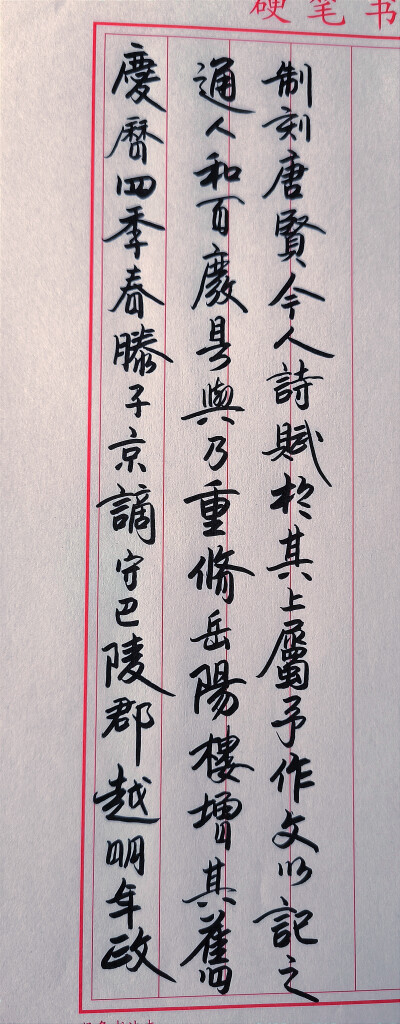 硬笔书
慶曆四季春滕子京謫守巴陵郡越明年政
通人和百廢具興乃重脩岳陽樓增其舊
制刻唐賢今人詩賦於其上屬予作文以記之